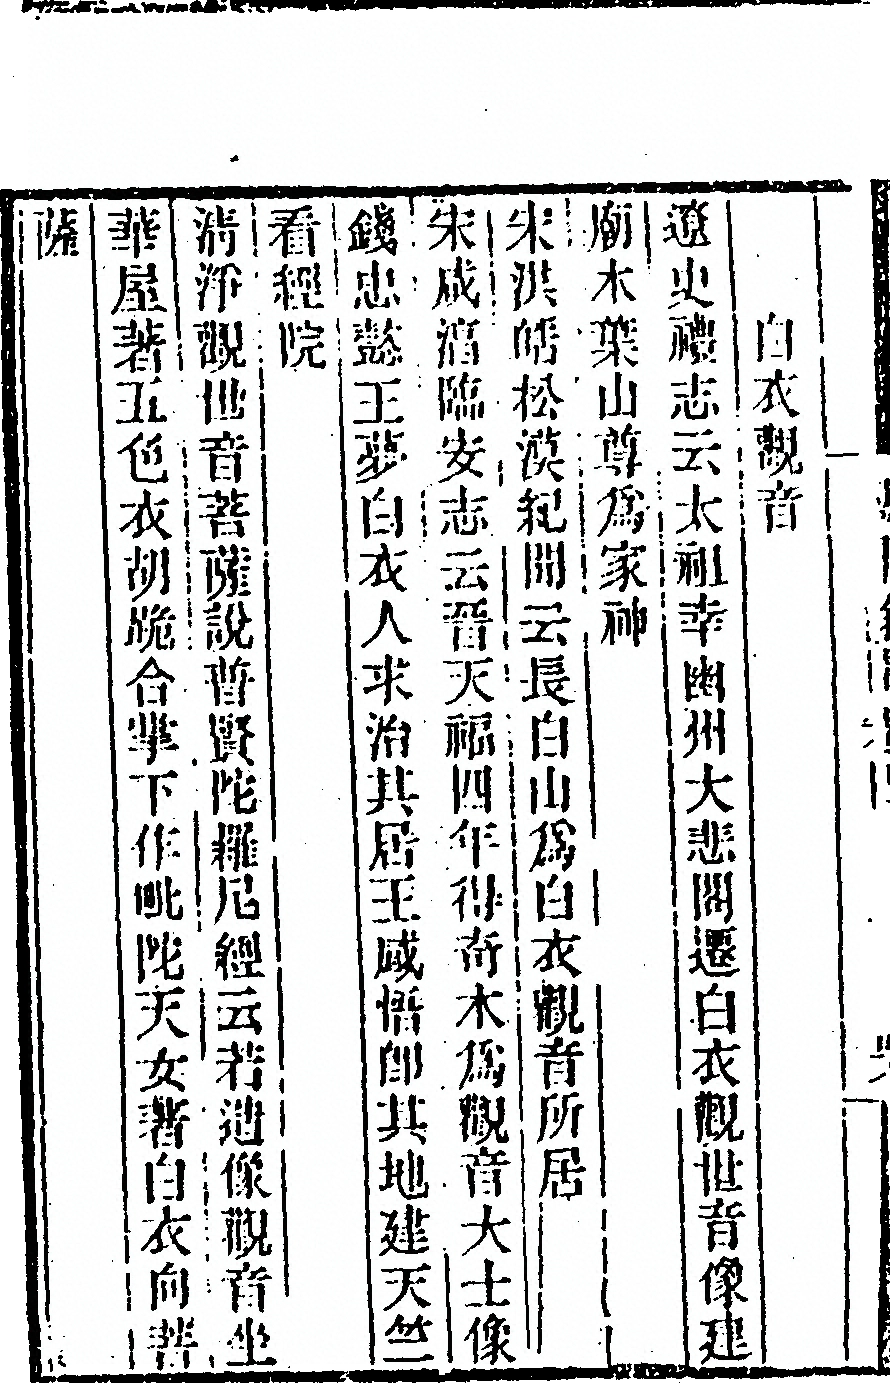 白衣觀音
遼史禮志云太祖幸幽州大悲閣遷白衣觀世音像建
廟木葉山尊爲家神
宋洪皓松漠紀聞云長白山爲白衣觀音所居
宋咸淳臨安志云晉天福四年得奇木爲觀音大士像
錢忠懿王夢白衣人求治其居王感悟卽其地建天竺
看經院
淸淨觀世音菩薩說普賢陀羅尼經云若造像觀音坐
華屋著五色衣胡跪合掌下作毗陀天女著白衣向菩
薩